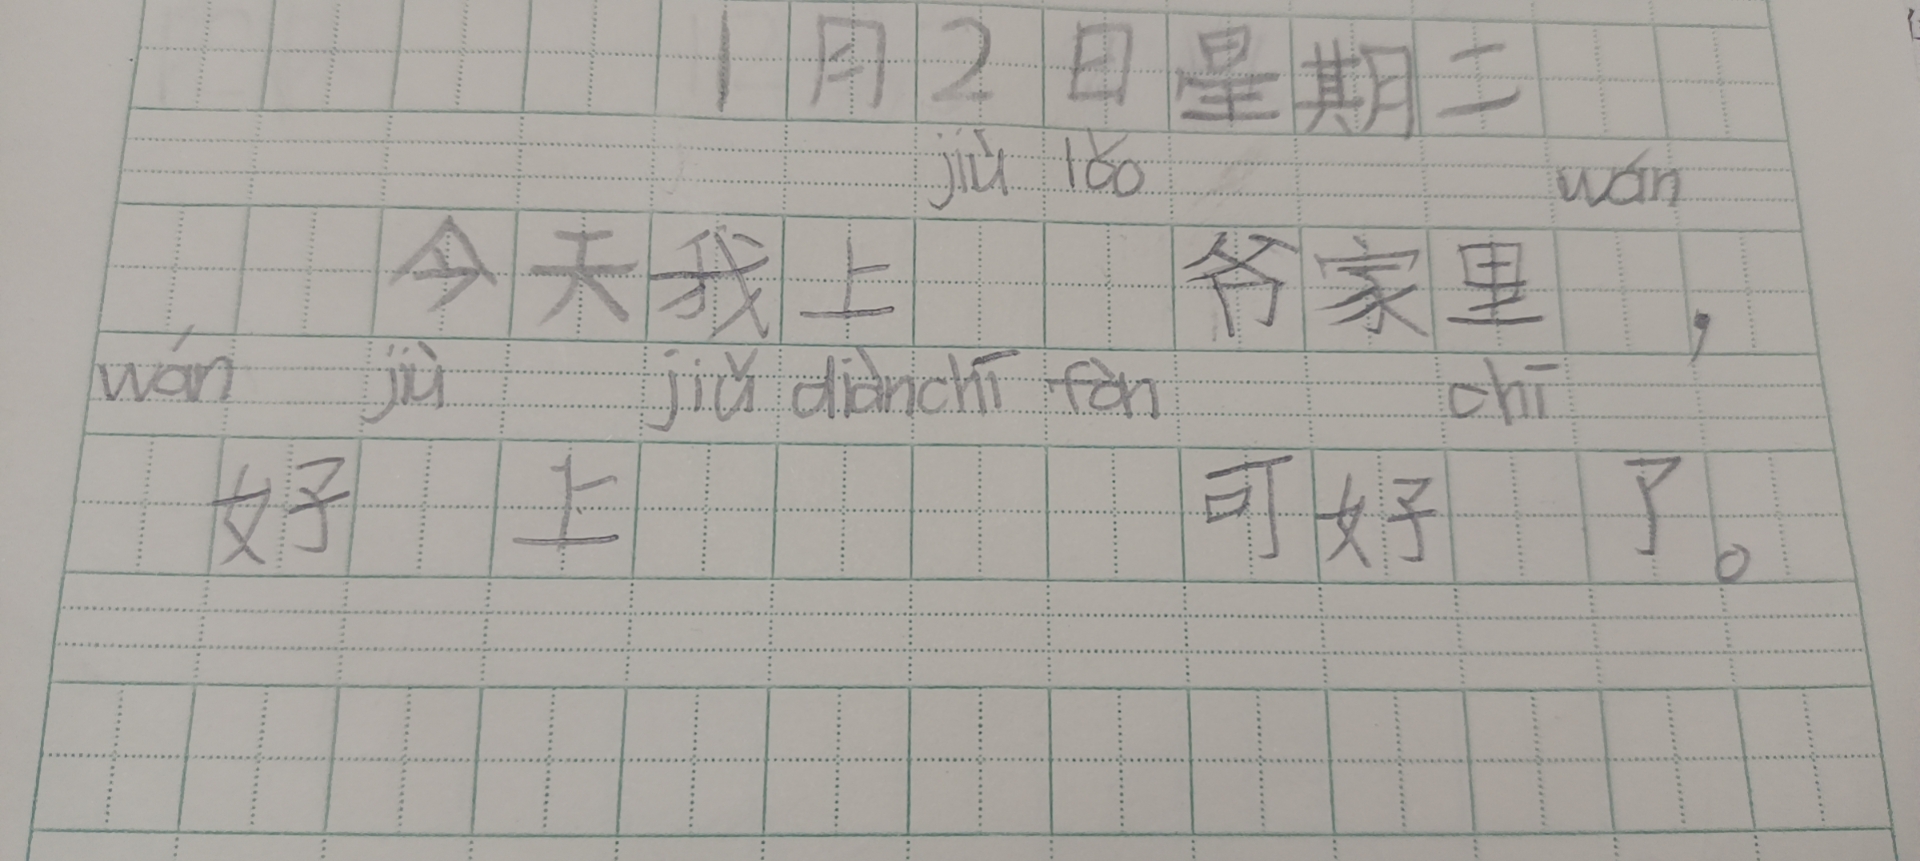 1月2日星期二
jiù lǎo wán
今天我上爷家里，
wán jiù jiǔ diàn chī fàn chī
好上可好了。